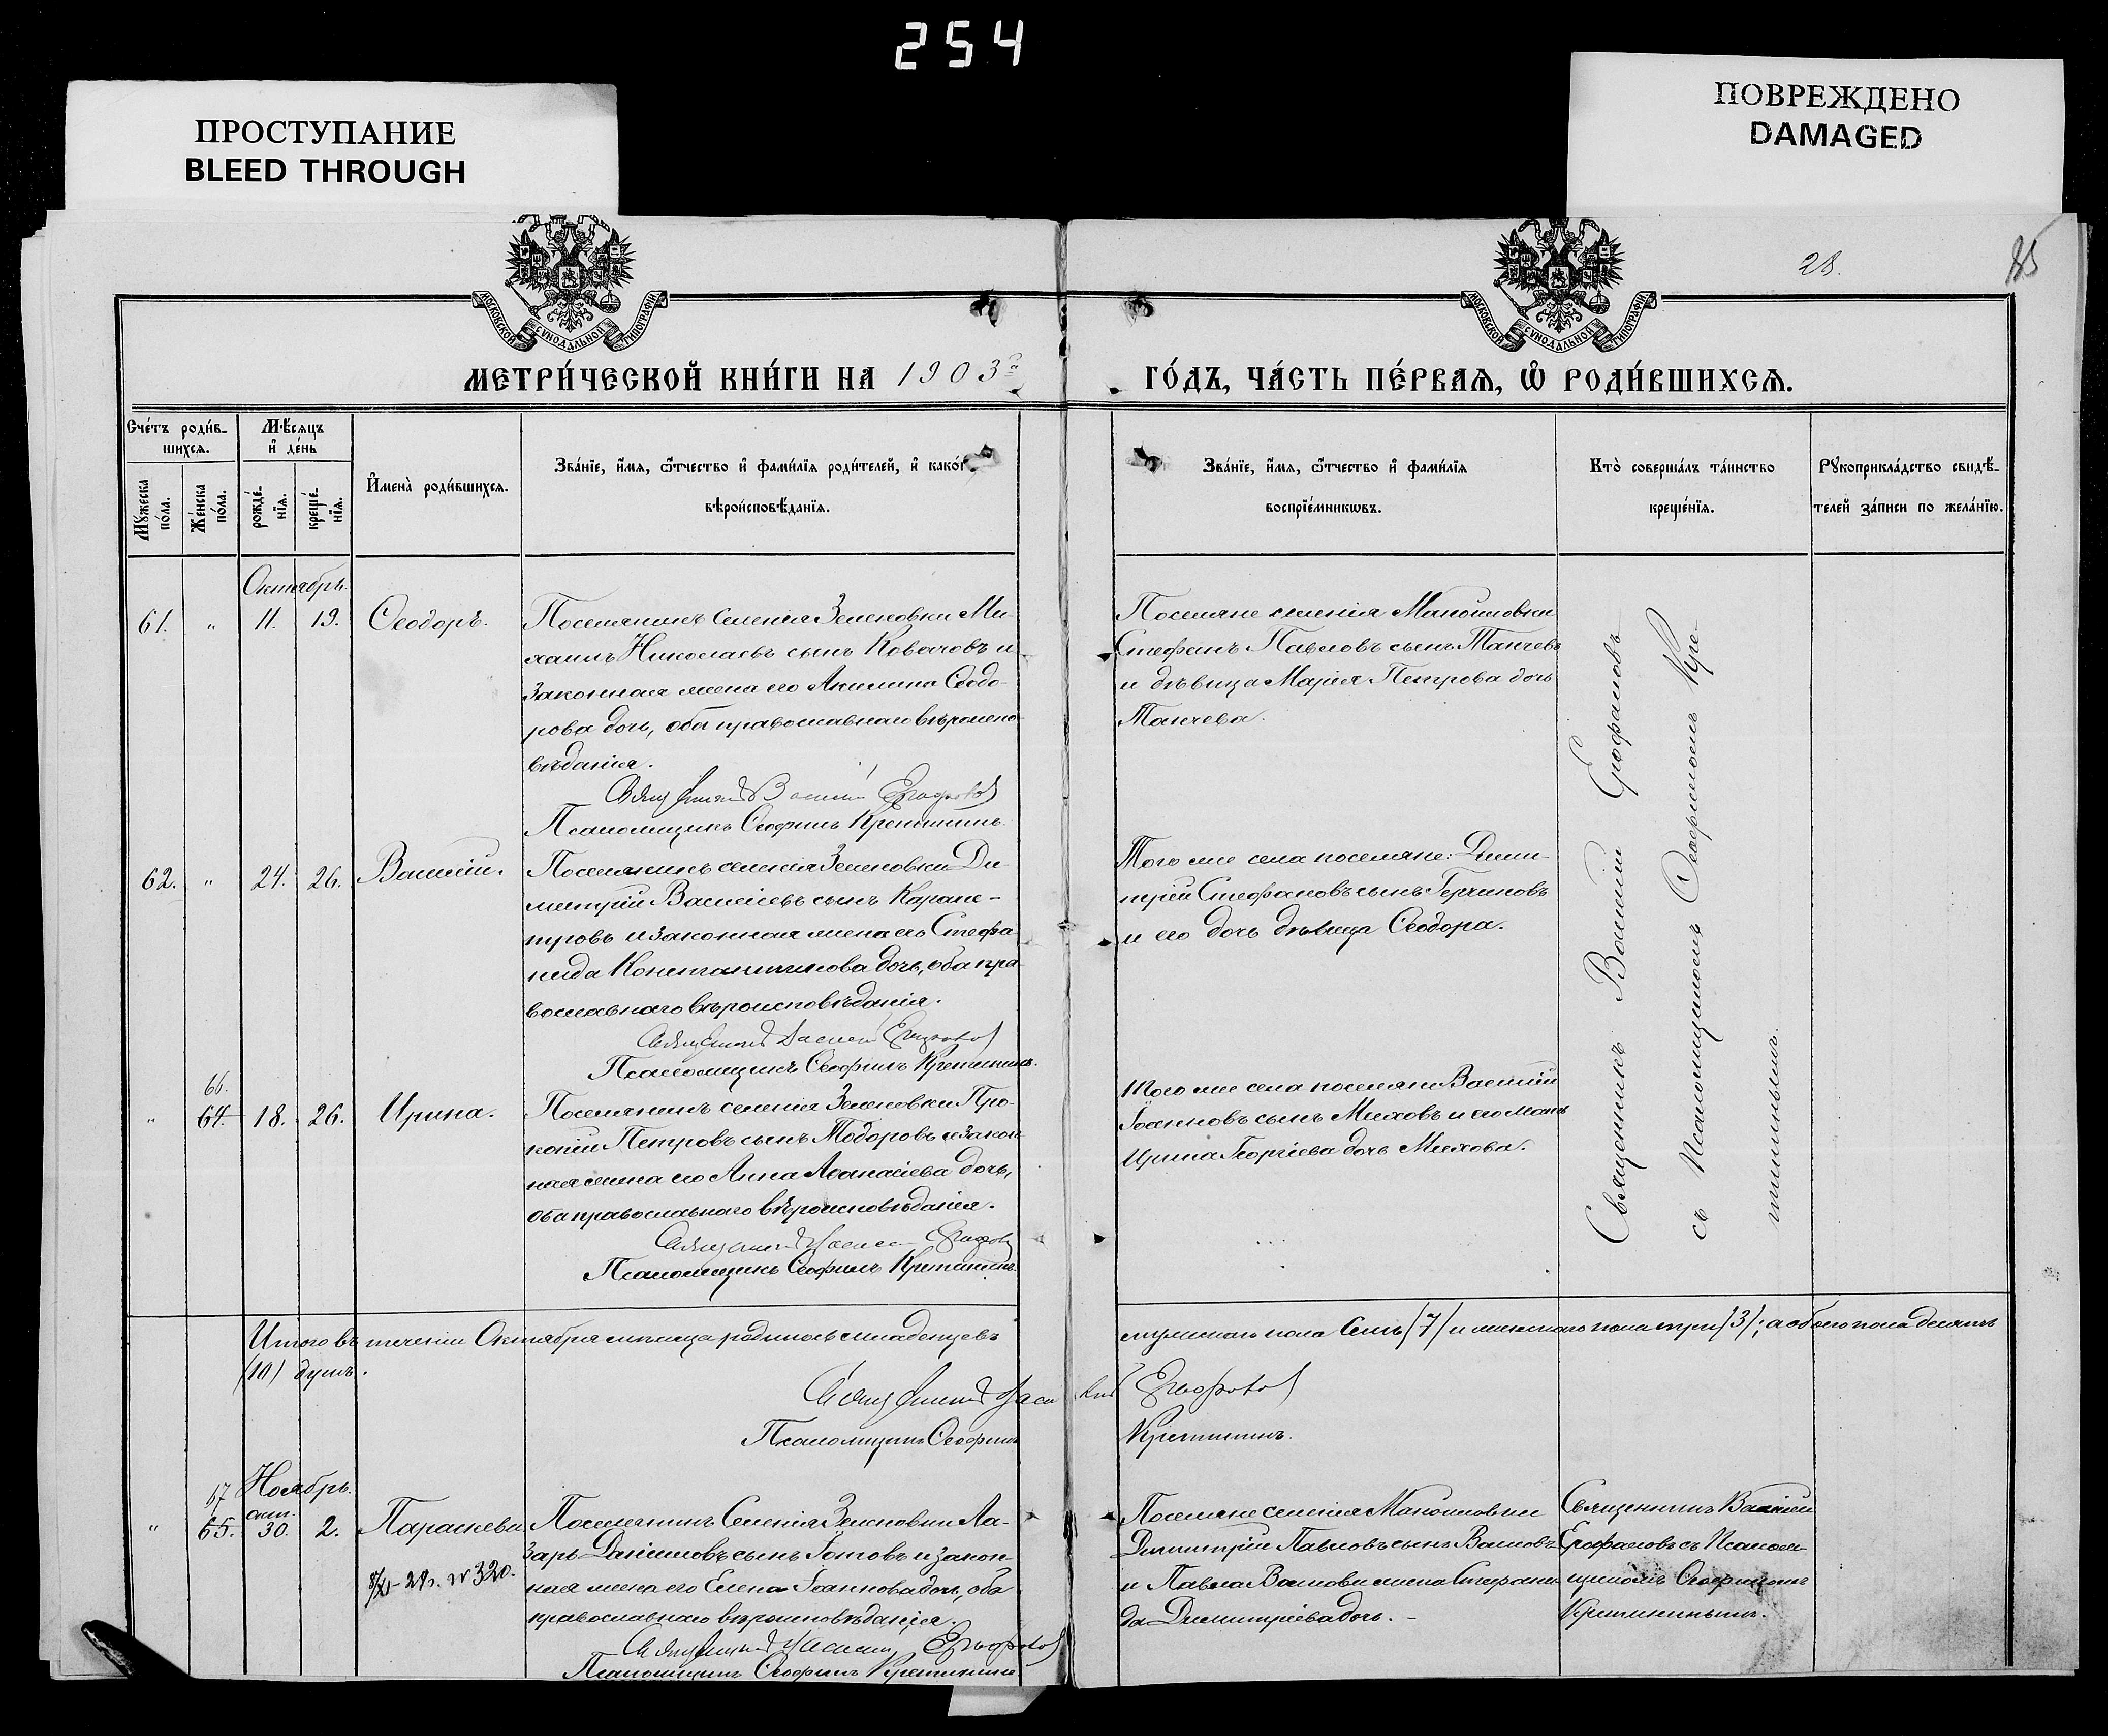 254
ПРОСТУПАНИЕ
BLEED THROUGH
ПОВРЕЖДЕНО
DAMAGED
МОСКОВСКОЙ СУНОДАЛЬНОЙ ТИПОГРАФІИ
МОСКОВСКОЙ СУНОДАЛЬНОЙ ТИПОГРАФІИ
28.
85
МЕТРИ́ЧЕСКОЙ КНИ́ГИ НА 1903 го
ГО́ДЪ, ЧА́СТЬ ПЕ́РВАЯ, Ѡ РОДИ́ВШИХСЯ.
Счётъ роди́в-
шихся.
Му́жеска по́ла.
Же́нска по́ла.
Мѣ́сяцъ
и де́нь
рожде́-
нїя.
креще́-
нїя.
Имена̀ роди́вшихся.
Зва́нїе, и́мя, ѻ́тчество и фами́лїя роди́телей, и како́г
вѣроисповѣ́данїя.
Зва́нїе, и́мя, ѻ́тчество и фами́лїя
воспрїе́мникѡвъ.
Кто̀ соверша́лъ та́инство
креще́нїя.
Рукоприкла́дство свидѣ́-
телей за́писи по жела́нїю.
Октябрь.
61. " 11. 19. Ѳеодоръ.
Поселянинъ селенія Зеленовки Ми-
хаилъ Николаевъ сынъ Ковачовъ и
законная жена его Акилина Ѳеодо-
рова дочь, оба православнаго вѣроиспо-
вѣданія.
Священникъ Василій Ерофаловъ
Псаломщикъ Ѳеофилъ Кретининъ.
Поселяне селенія Манойловки
Стефанъ Павловъ сынъ Танчевъ
и дѣвица Марія Петрова дочь
Танчева.
62. " 24. 26. Василій.
Поселянинъ селенія Зеленовки Ди-
митрій Васильевъ сынъ Карапе-
тровъ и законная жена его Стефа-
нида Константинова дочь, оба пра-
вославнаго вѣроисповѣданія.
Священникъ Василій Ерофаловъ
Псаломщикъ Ѳеофилъ Кретининъ.
Того же села поселяне: Дими-
трій Стефановъ сынъ Герчиновъ
и его дочь дѣвица Ѳеодора.
66.
" 64. 18. 26. Ирина.
Поселянинъ селенія Зеленовки Про-
копій Петровъ сынъ Тодоровъ и закон-
ная жена его Анна Аѳанасіева дочь,
оба православнаго вѣроисповѣданія.
Священникъ Василій Ерофаловъ
Псаломщикъ Ѳеофилъ Кретининъ.
Того же села поселяне Василій
Іоанновъ сынъ Миховъ и его мать
Ирина Георгіева дочь Михова.
Священникъ Василій Ерофаловъ
съ Псаломщикомъ Ѳеофиломъ Кре-
тининымъ.
Итого въ теченіи Октября мѣсяца родилось младенцевъ
мужскаго пола семь (7) и женскаго пола три (3); а обоего пола десять
(10) душъ.
Священникъ Василій Ерофаловъ
Псаломщикъ Ѳеофилъ Кретининъ.
Ноябрь.
67
окт.
" 65. 30. 2. Параскева
Поселянинъ селенія Зеленовки Ла-
зарь Даниловъ сынъ Готовъ и закон-
ная жена его Елена Іоаннова дочь, оба
православнаго вѣроисповѣданія.
Священникъ Василій Ерофаловъ
Псаломщикъ Ѳеофилъ Кретининъ
№ 320.
Поселяне селенія Манойловки
Димитрій Павловъ сынъ Вылковъ
и Павла Вылкова жена Стефани-
да Димитріева дочь.
Священникъ Василій
Ерофаловъ съ Псалом-
щикомъ Ѳеофиломъ
Кретининымъ.